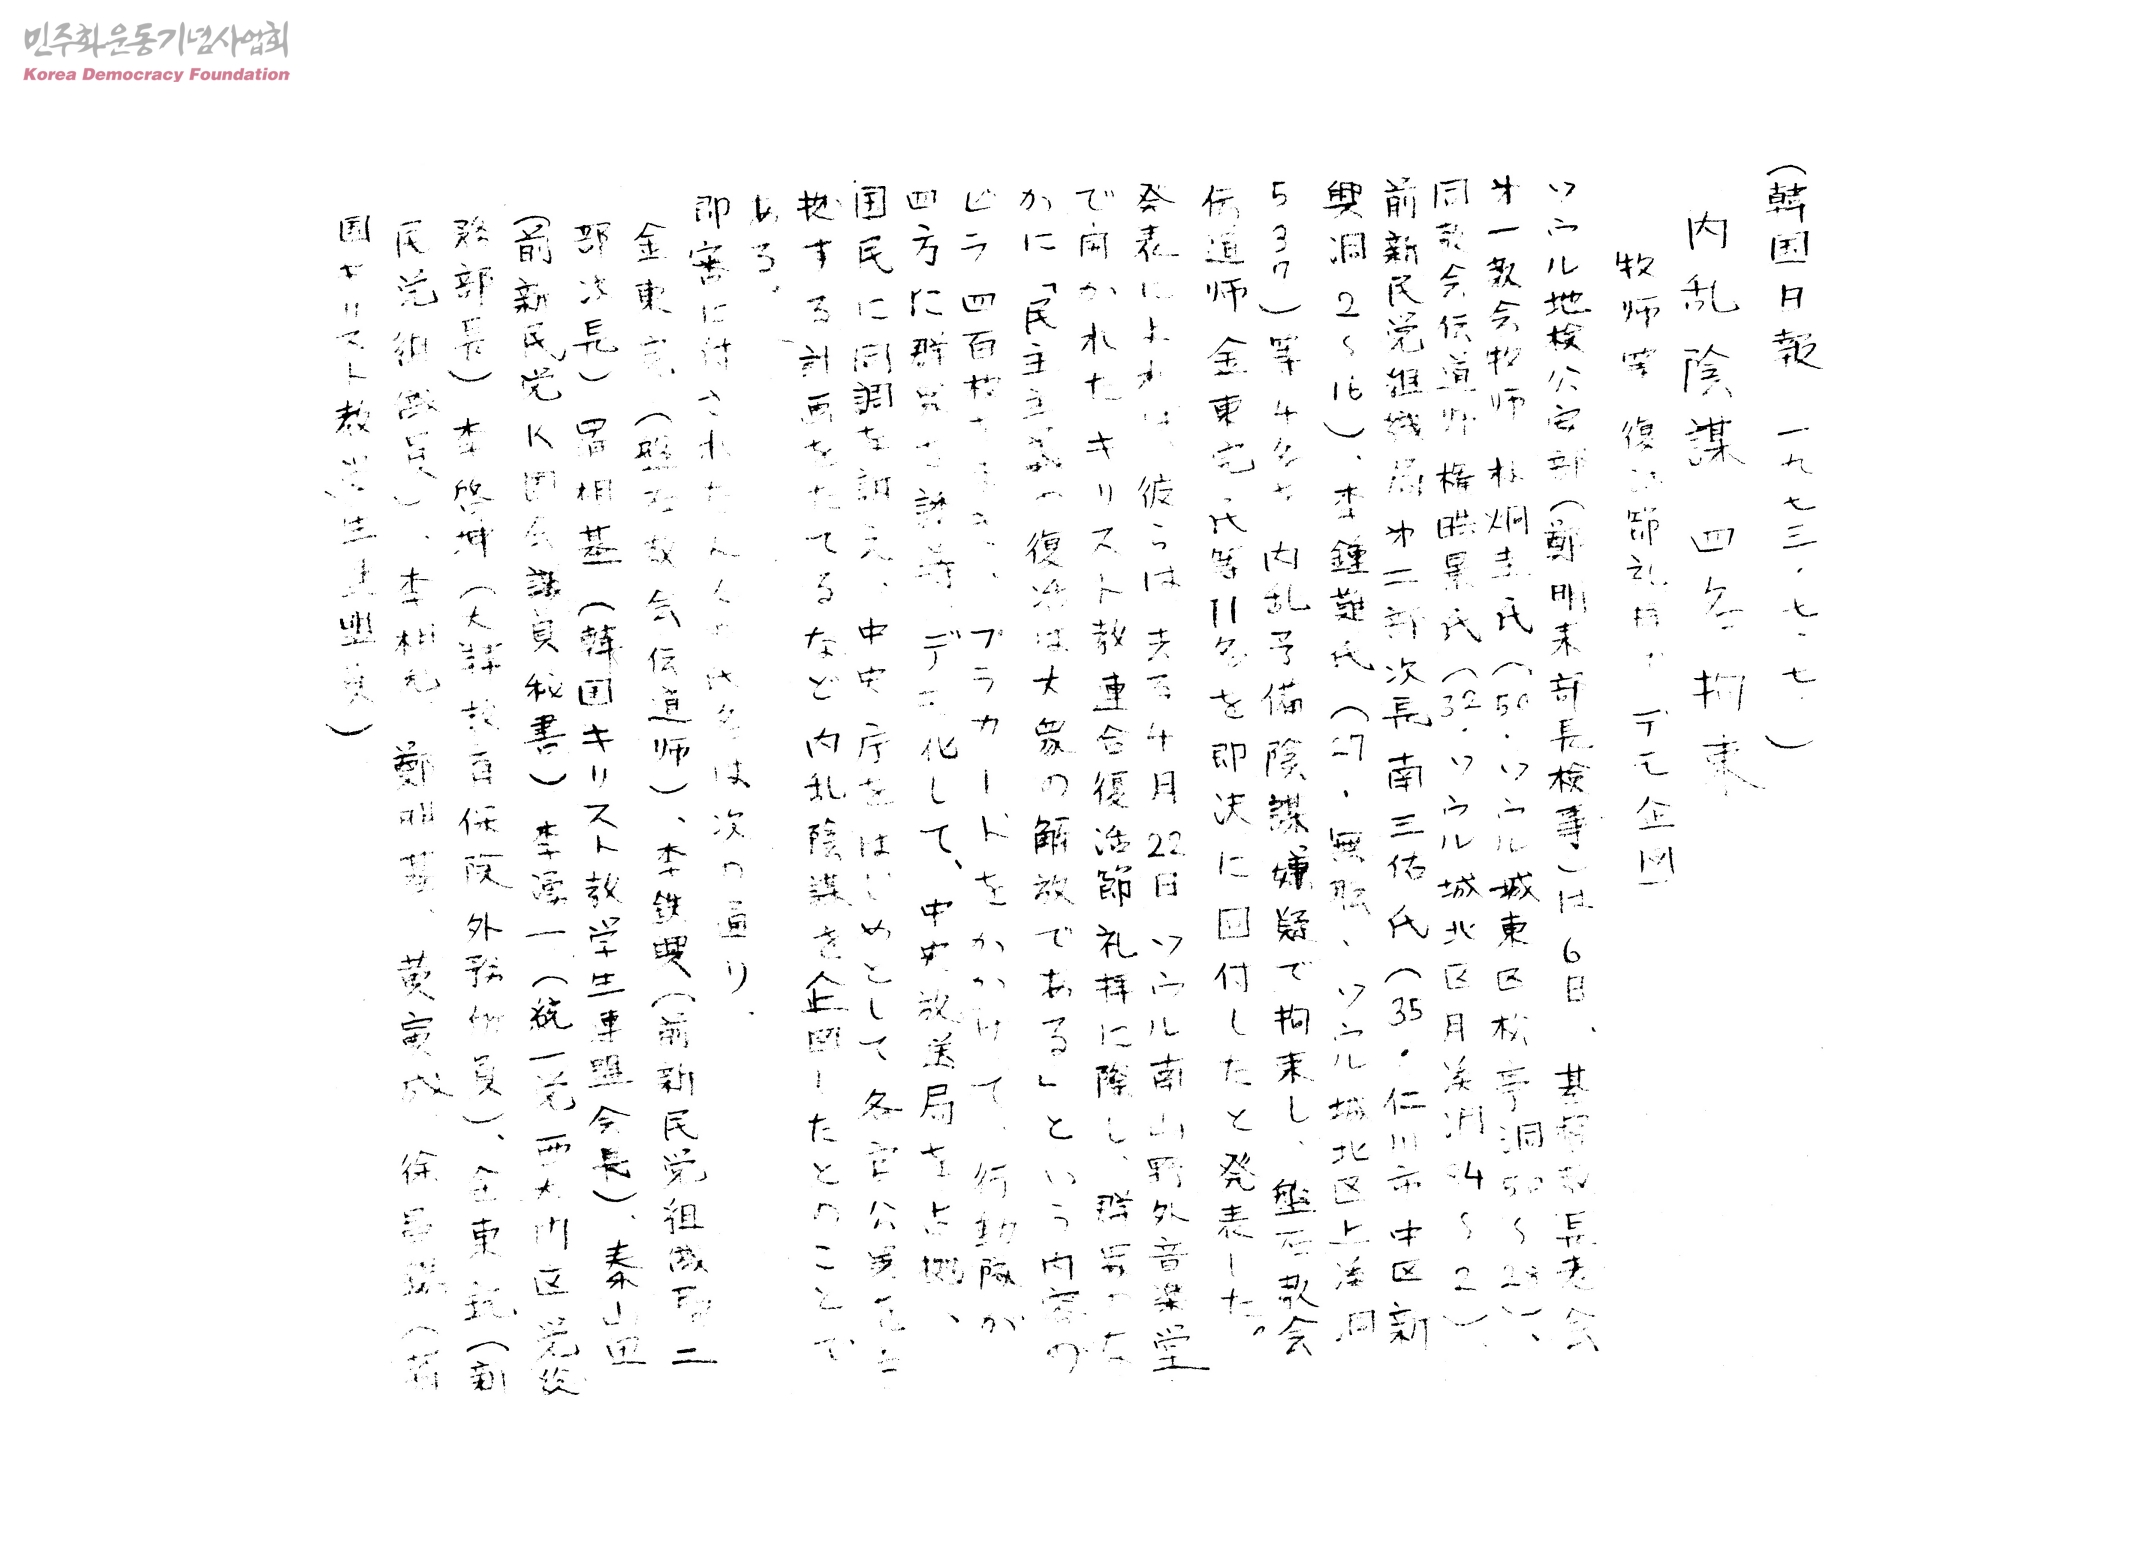 민주화운동기념사업회
Korea Democracy Foundation
(韓国日報 一九七三・七・七・)
内乱陰謀 四名 拘束
牧师等 復活節礼拝デモ企図
ソウル地検公安部(鄭明来部長検事)は6日、基督教長老会
オ一教会牧师 朴炯圭氏(50・ソウル城東区松亭洞50〜28)、
同教会伝道师 権晧景氏(32・ソウル城北区月渓洞〜2)、
前新民党組織局オ二部次長南三佑氏(35・仁川市中区新
興洞2〜16)、李鍾蘭氏(27・無職、ソウル城北区上渓洞
537)等4名を内乱予備陰謀嫌疑で拘束し、盤石教会
伝道师 金東完氏等11名を即決に回付したと発表した。
発表によれば、彼らは去る4月22日ソウル南山野外音楽堂
で開かれたキリスト教連合復活節礼拝に際し、群衆のな
かに「民主主義の復活は大衆の解放である」という内容の
ビラ四百枚をまき、プラカードをかかげて、行動隊が
四方に群衆を誘導、デモ化して、中央放送局を占拠、
国民に同調を訴え、中央庁をはじめとして各官公署を占
拠する計画をたてるなど内乱陰謀を企図したとのことで
ある。
即審に付された人々の氏名は次の通り.
金東完(盤石教会伝道师)、李鉄興(前新民党組織局二
部次長)羅相基(韓国キリスト教学生連盟会長)、秦山田
(前新民党K国会議員秘書)李運一(統一党西大門区党総
務部長)李啓坤(大韓教育保険外務社員)、金東玩(新
民党組織員)、李相允 鄭明基、黄寅成 徐昌錫(前
国キリスト教学生連盟員)